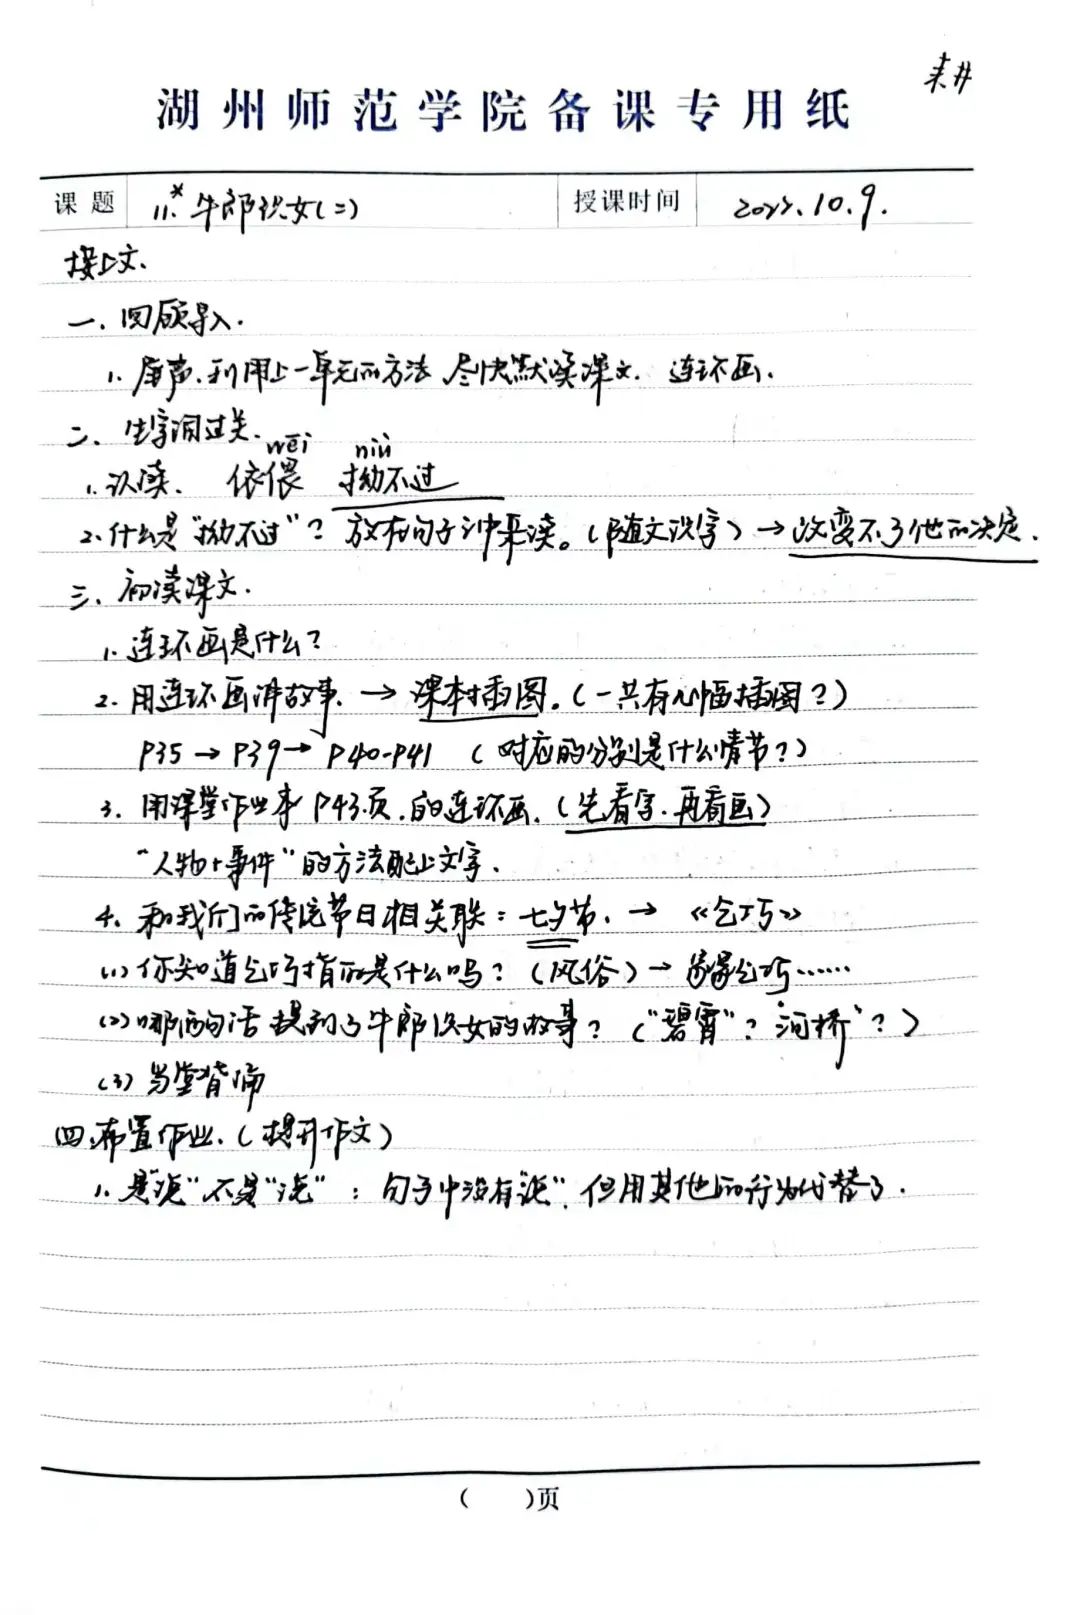 湖州师范学院备课专用纸
课题 11.* 牛郎织女(二) 授课时间 10.9.
接上文.
一、回顾导入.
1. 利用上一单元的方法 尽快默读课文. 连环画.
二、生字词过关.
wēi niù
1. 认读、 依偎 拗不过
2. 什么是"拗不过"? 放在句子中来读。(随文识字) → 改变不了他的决定.
三、初读课文.
1. 连环画是什么?
2. 用连环画讲故事. → 课本插图。(一共有几幅插图?)
P35 → P39 → P40-P41 (对应的分别是什么情节?)
3. 用课堂作业本P43页.的连环画.(先看字.再看画)
"人物+事件"的方法配上文字.
4. 和我们的传统节日相关联: 七夕节. → 《乞巧》
(1) 你知道乞巧指的是什么吗? (风俗) → 乞巧……
(2) 哪两句话提到了牛郎织女的故事? ("碧霄"? 河桥"?)
(3) 当堂背诵
四、布置作业.(提升作文)
1. 是"说"不是"说" : 句子中没有"说". 但用其他的行为代替了.
( )页